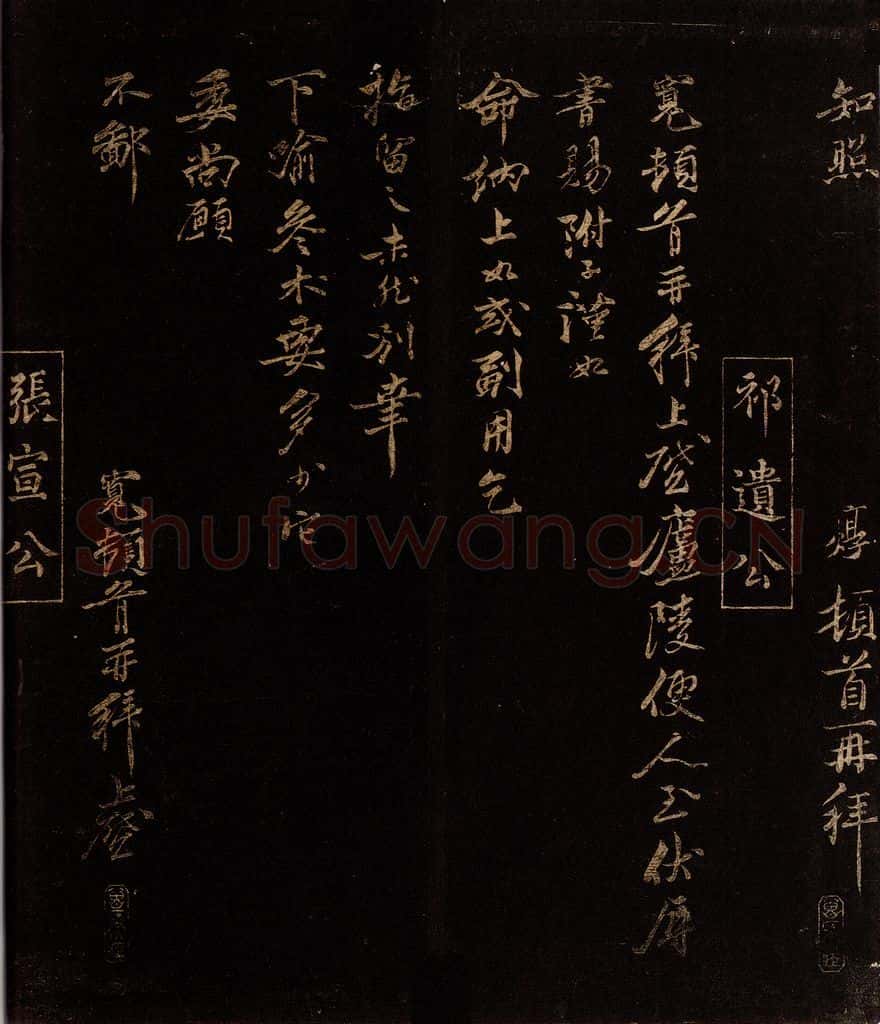 知照
頓首再拜
祁遺公
寬頓首再拜上啓廬陵便人至伏辱
書賜附子謹如
命納上如或副用乞
指留之未然別幸
下喻參朮要多少它
委尚願
不鄙
寬頓首再拜上啓
張宣公
Shufawang.CN